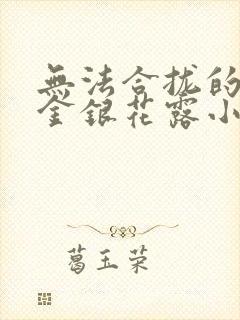 無法合拢的
金銀花露小
葛玉荣